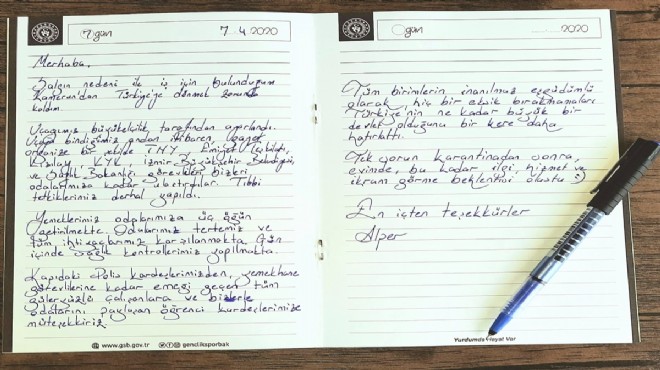 7. gün
7.4.2020
Merhaba,
Salgın nedeni ile iş için bulunduğum
Kamerun'dan Türkiye'ye dönmek zorunda
kaldım.
Uçağımız büyükelçilik tarafından ayarlandı.
Uçağa bindiğimiz andan itibaren gayet
organize bir şekilde T.H.Y, Emniyet Teşkilatı,
Kızılay, KYK, İzmir Büyükşehir Belediyesi,
ve Sağlık Bakanlığı görevlileri bizleri
odalarımıza kadar ulaştırdılar. Tıbbi
tetkiklerimiz derhal yapıldı.
Yemeklerimiz odalarımıza üç öğün
getirilmekte. Odalarımız tertemiz ve
tüm ihtiyaçlarımız karşılanmakta. Gün
içinde sağlık kontrollerimiz yapılmakta.
Kapıdaki Polis kardeşlerimizden, yemekhane
görevlilerine kadar emeği geçen tüm
güleryüzlü çalışanlara ve bizlerle
odalarını paylaşan öğrenci kardeşlerimize
müteşekkiriz.
www.gsb.gov.tr
gencliksporbak
gün
2020
Tüm birimlerin inanılmaz eşgüdümlü
olarak, hiç bir eksik bırakmamaları
Türkiye'nin ne kadar büyük bir
devlet olduğunu bir kere daha
hatırlattı.
Tek sorun karantinadan sonra,
evimde, bu kadar ilgi, hizmet ve
ikram görme beklentisi oluştu :)
En içten teşekkürler
Alper
Yurdumda Hayat Var